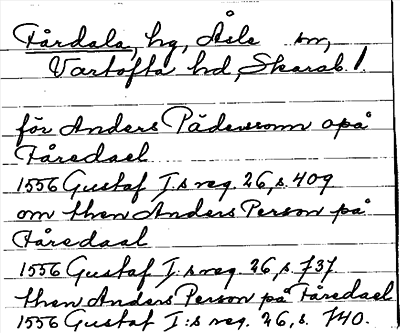 Fårdala, hg, Åsle sn,
Vartofta hd, Skarab. l.
för Anders Pädersonn opå
Fåredael
1556 Gustaf I:s reg. 26, s. 409
om then Anders Person på
Fåredaal
1556 Gustaf I:s reg. 26, s. 737.
then Anders Person på Fåredael
1556 Gustaf I:s reg. 26, s. 740.